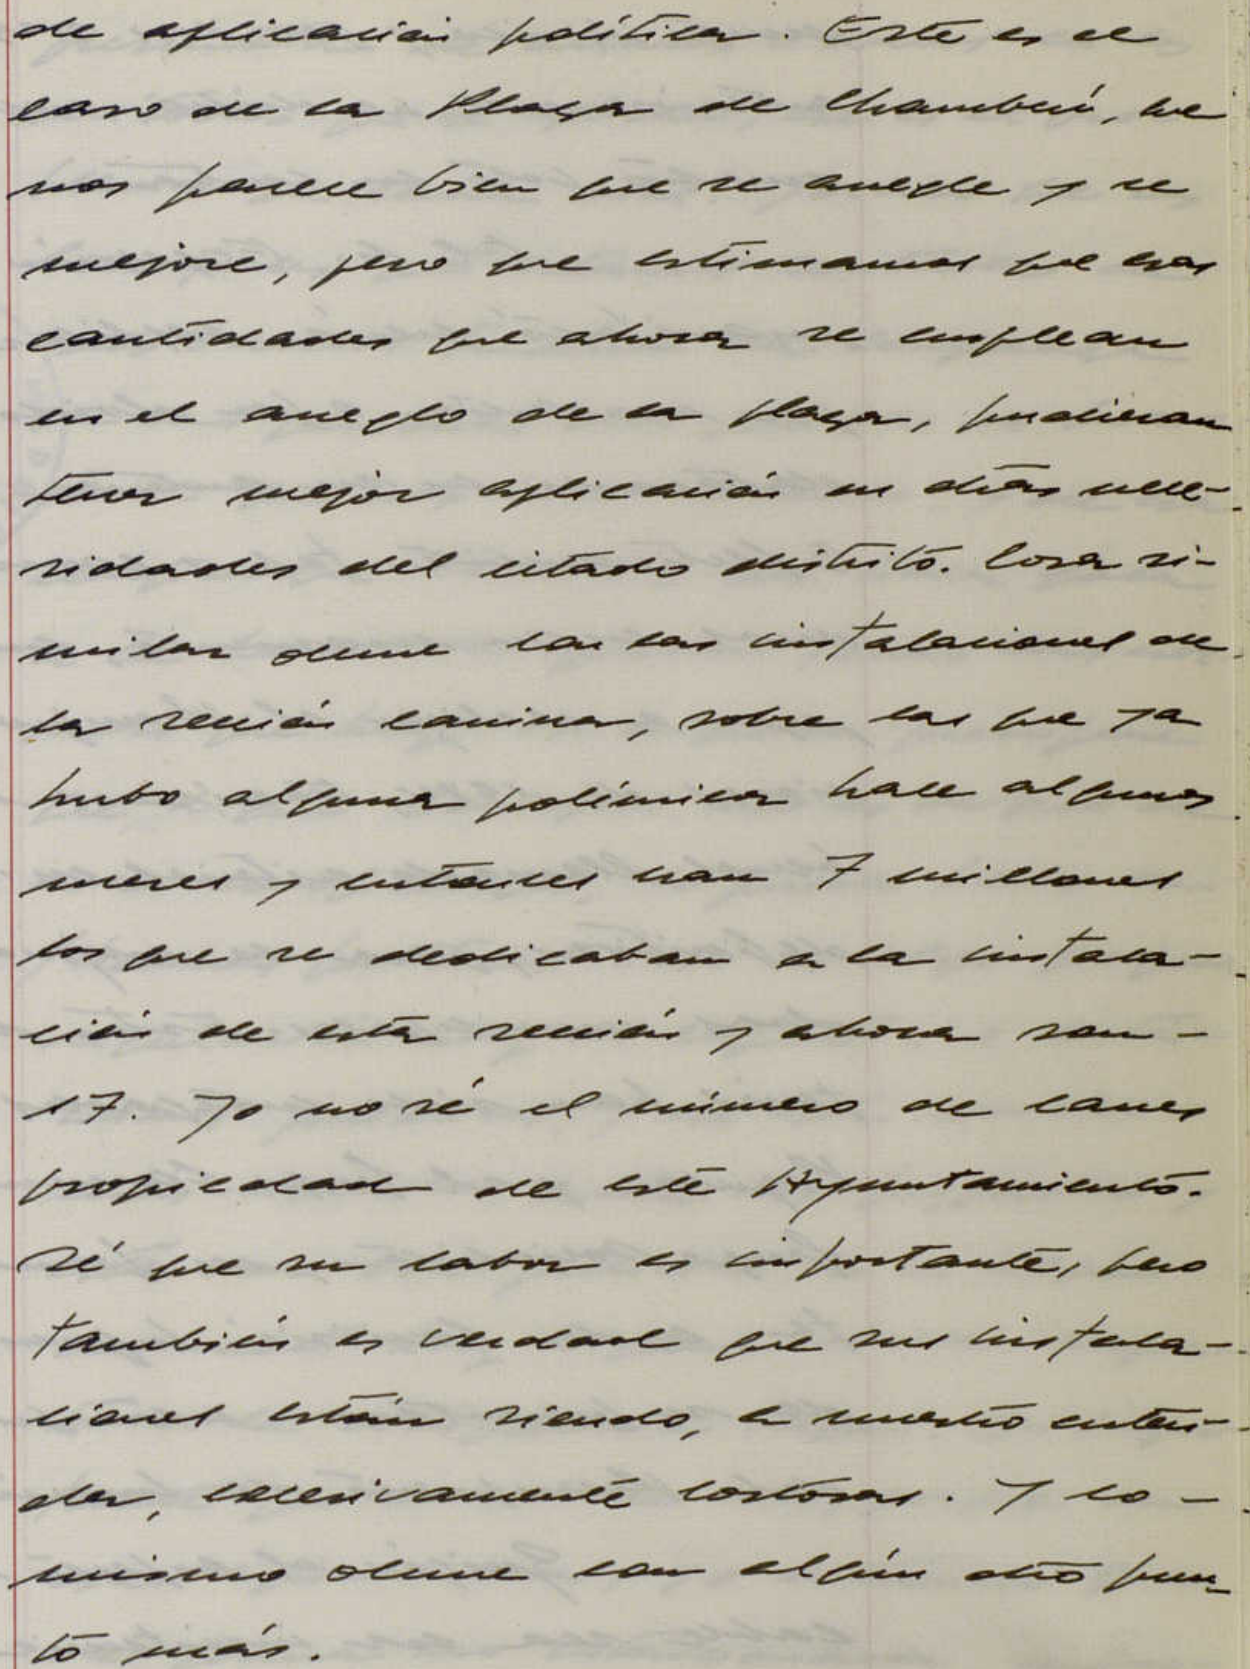 de aplicación política. Este es el
caso de la Plaza de Chamberí, que
nos parece bien que se arregle y se
mejore, pero que estimamos que esas
cantidades que ahora se emplean
en el arreglo de la plaza, pudieran
tener mejor aplicación en otras nece-
sidades del citado distrito. Cosa si-
milar ocurre con las instalaciones de
la sección canina, sobre las que ya
hubo alguna polémica hace algunos
meses y entonces eran 7 millones
los que se dedicaban a la instala-
ción de esta sección y ahora son -
17. Yo no sé el número de canes
propiedad de este Ayuntamiento.
Sé que su labor es importante, pero
también es verdad que sus instala-
ciones están siendo, a nuestro enten-
der, excesivamente costosas. Y lo -
mismo ocurre con algún otro pun-
to más.